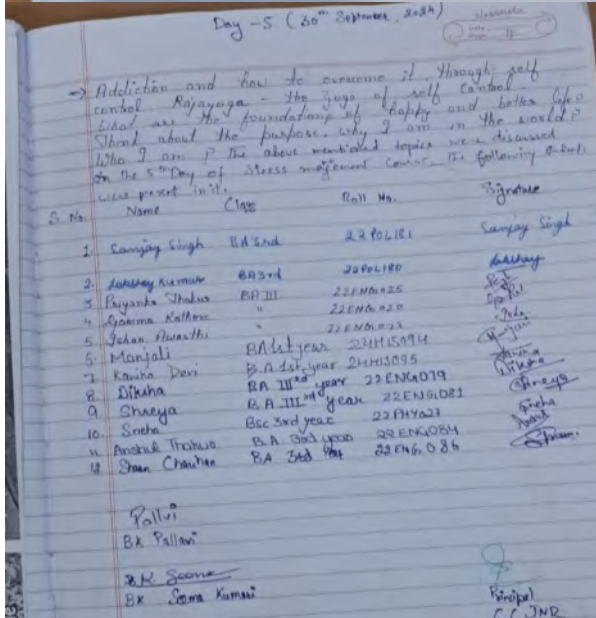 Day - 5 (30th September, 2024)
classmate
→ Addiction and how to overcome it, through self
control Rajayoga - the yoga of self control.
What are the foundations of happy and better life?
Think about the purpose, why I am in the world?
Who I am? The above mentioned topics were discussed
on the 5th Day of stress mgement course. The following
were present in it.
S. No. Name Class Roll No. Signature
1. Sanjay Singh BA 3rd 22POL181 Sanjay Singh
2. Lakshay Kumar BA 3rd 22POL180 Lakshay
3 Priyanka Thakur BA III 22ENG025
4 Kathore " 22ENG020
5 Ishan Awasthi "
6. Manjali BA 1st year 24HIS094
7 Kavika Devi B.A 1st year 24HIS095
8. Diksha BA IIIrd year 22ENG079 Diksha
9 Shreya B.A IIIrd year 22ENG081 Shreya
10. Sneha Bsc 3rd year 22PHY027 Sneha
11 Anshul Thakur B.A. 3rd year 22ENG084 Anshul
12 Chauhan BA 3rd 22ENG086
Pallvi
BK Pallavi
BK Seema
BK Seema Kumari
Principal